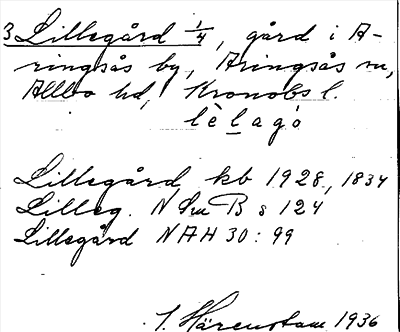 3 Lillegård 1/4, gård i A-
ringsås by, Aringsås sn,
Allbo hd, Kronobs l.
lèlagó
Lillegård kb 1928, 1834
Lilleg. N Sm B s 124
Lillegård NAH 30: 99
J. Härenstam 1936